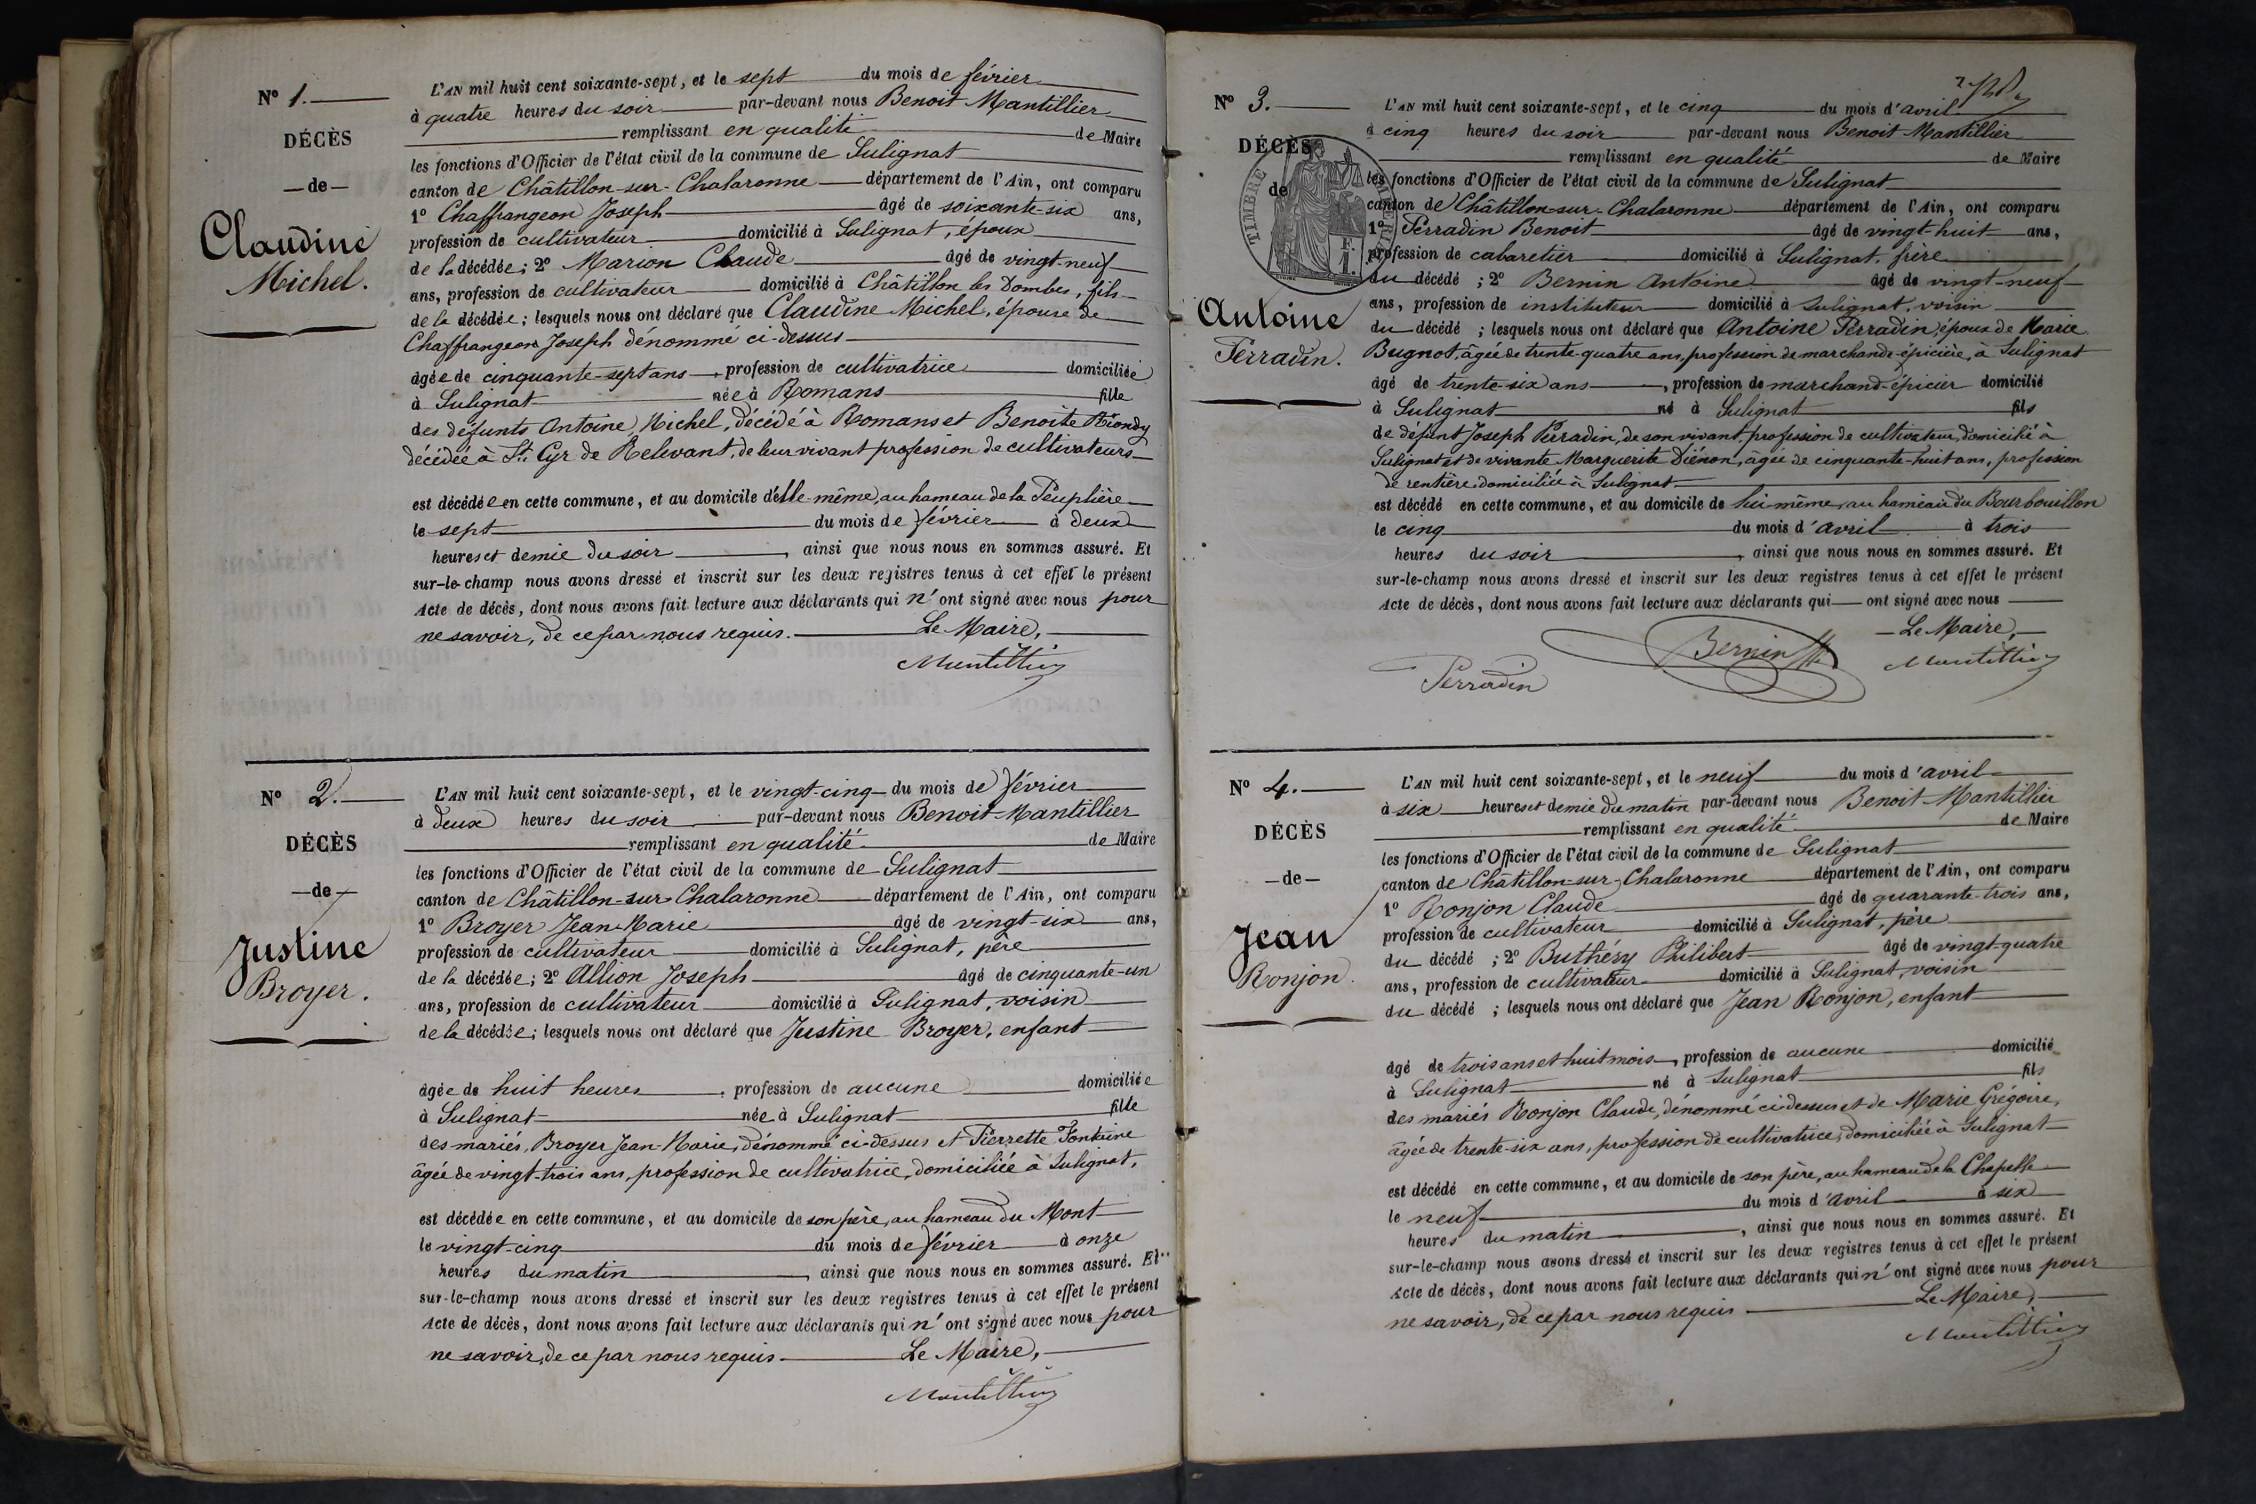 N° 1.
DÉCÈS
— de —
Claudine
Michel.
L'AN mil huit cent soixante-sept, et le sept du mois de février
à quatre heures du soir par-devant nous Benoit Mantillier
remplissant en qualité de Maire
les fonctions d'Officier de l'état civil de la commune de Sulignat
canton de Châtillon-sur-Chalaronne département de l'Ain, ont comparu
1° Chaffrangeon Joseph âgé de soixante-six ans,
profession de cultivateur domicilié à Sulignat, époux
de la décédée; 2° Marion Claude âgé de vingt-neuf
ans, profession de cultivateur domicilié à Châtillon les Dombes, fils
de la décédée; lesquels nous ont déclaré que Claudine Michel, épouse de
Chaffrangeon Joseph dénommé ci-dessus
âgée de cinquante-sept ans, profession de cultivatrice domiciliée
à Sulignat née à Romans fille
des défunts Antoine Michel, décédé à Romans et Benoite Riondy
décédée à St. Cyr de Relevant, de leur vivant profession de cultivateurs
est décédée en cette commune, et au domicile d'elle-même, au hameau de la Peuplière
le sept du mois de février à deux
heures et demie du soir, ainsi que nous nous en sommes assuré. Et
sur-le-champ nous avons dressé et inscrit sur les deux registres tenus à cet effet le présent
Acte de décès, dont nous avons fait lecture aux déclarants qui n'ont signé avec nous pour
ne savoir, de ce par nous requis. Le Maire,
Mantillier
N° 2.
DÉCÈS
— de —
Justine
Broyer.
L'AN mil huit cent soixante-sept, et le vingt-cinq du mois de février
à deux heures du soir par-devant nous Benoit Mantillier
remplissant en qualité de Maire
les fonctions d'Officier de l'état civil de la commune de Sulignat
canton de Châtillon-sur-Chalaronne département de l'Ain, ont comparu
1° Broyer Jean-Marie âgé de vingt-six ans,
profession de cultivateur domicilié à Sulignat, père
de la décédée; 2° Allion Joseph âgé de cinquante-un
ans, profession de cultivateur domicilié à Sulignat, voisin
de la décédée; lesquels nous ont déclaré que Justine Broyer, enfant
âgée de huit heures, profession de aucune domiciliée
à Sulignat née à Sulignat fille
des mariés, Broyer Jean-Marie, dénommé ci-dessus et Pierrette Fontaine
âgée de vingt-trois ans, profession de cultivatrice, domiciliée à Sulignat,
est décédée en cette commune, et au domicile de son père, au hameau du Mont
le vingt-cinq du mois de février à onze
heures du matin, ainsi que nous nous en sommes assuré. Et
sur-le-champ nous avons dressé et inscrit sur les deux registres tenus à cet effet le présent
Acte de décès, dont nous avons fait lecture aux déclarants qui n'ont signé avec nous pour
ne savoir, de ce par nous requis Le Maire,
Mantillier
N° 3.
DÉCÈS
de
TIMBRE IMPERIAL
Antoine
Perradin.
L'AN mil huit cent soixante-sept, et le cinq du mois d'avril
à cinq heures du soir par-devant nous Benoit Mantillier
remplissant en qualité de Maire
les fonctions d'Officier de l'état civil de la commune de Sulignat
canton de Châtillon-sur-Chalaronne département de l'Ain, ont comparu
1° Perradin Benoit âgé de vingt-huit ans,
profession de cabaretier domicilié à Sulignat, frère
du décédé; 2° Bernin Antoine âgé de vingt-neuf
ans, profession de instituteur domicilié à Sulignat, voisin
du décédé; lesquels nous ont déclaré que Antoine Perradin, époux de Marie
Bugnot, âgée de trente-quatre ans, profession de marchande-épicière, à Sulignat
âgé de trente-six ans, profession de marchand-épicier domicilié
à Sulignat né à Sulignat fils
de défunt Joseph Perradin, de son vivant, profession de cultivateur, domicilié à
Sulignat et de vivante Marguerite Diénon, âgée de cinquante-huit ans, profession
de rentière, domiciliée à Sulignat
est décédé en cette commune, et au domicile de lui-même, au hameau du Bourbouillon
le cinq du mois d'avril à trois
heures du soir, ainsi que nous nous en sommes assuré. Et
sur-le-champ nous avons dressé et inscrit sur les deux registres tenus à cet effet le présent
Acte de décès, dont nous avons fait lecture aux déclarants qui ont signé avec nous
Le Maire,
Perradin Bernin Mantillier
N° 4.
DÉCÈS
— de —
Jean
Ronjon
L'AN mil huit cent soixante-sept, et le neuf du mois d'avril
à six heures et demie du matin par-devant nous Benoit Mantillier
remplissant en qualité de Maire
les fonctions d'Officier de l'état civil de la commune de Sulignat
canton de Châtillon-sur-Chalaronne département de l'Ain, ont comparu
1° Ronjon Claude âgé de quarante-trois ans,
profession de cultivateur domicilié à Sulignat, père
du décédé; 2° Buthéry Philibert âgé de vingt-quatre
ans, profession de cultivateur domicilié à Sulignat, voisin
du décédé; lesquels nous ont déclaré que Jean Ronjon, enfant
âgé de trois ans et huit mois, profession de aucune domicilié
à Sulignat né à Sulignat fils
des mariés Ronjon Claude, dénommé ci-dessus et de Marie Grégoire,
âgée de trente-six ans, profession de cultivatrice, domiciliée à Sulignat
est décédé en cette commune, et au domicile de son père, au hameau de la Chapelle
le neuf du mois d'avril à six
heures du matin, ainsi que nous nous en sommes assuré. Et
sur-le-champ nous avons dressé et inscrit sur les deux registres tenus à cet effet le présent
Acte de décès, dont nous avons fait lecture aux déclarants qui n'ont signé avec nous pour
ne savoir, de ce par nous requis Le Maire,
Mantillier